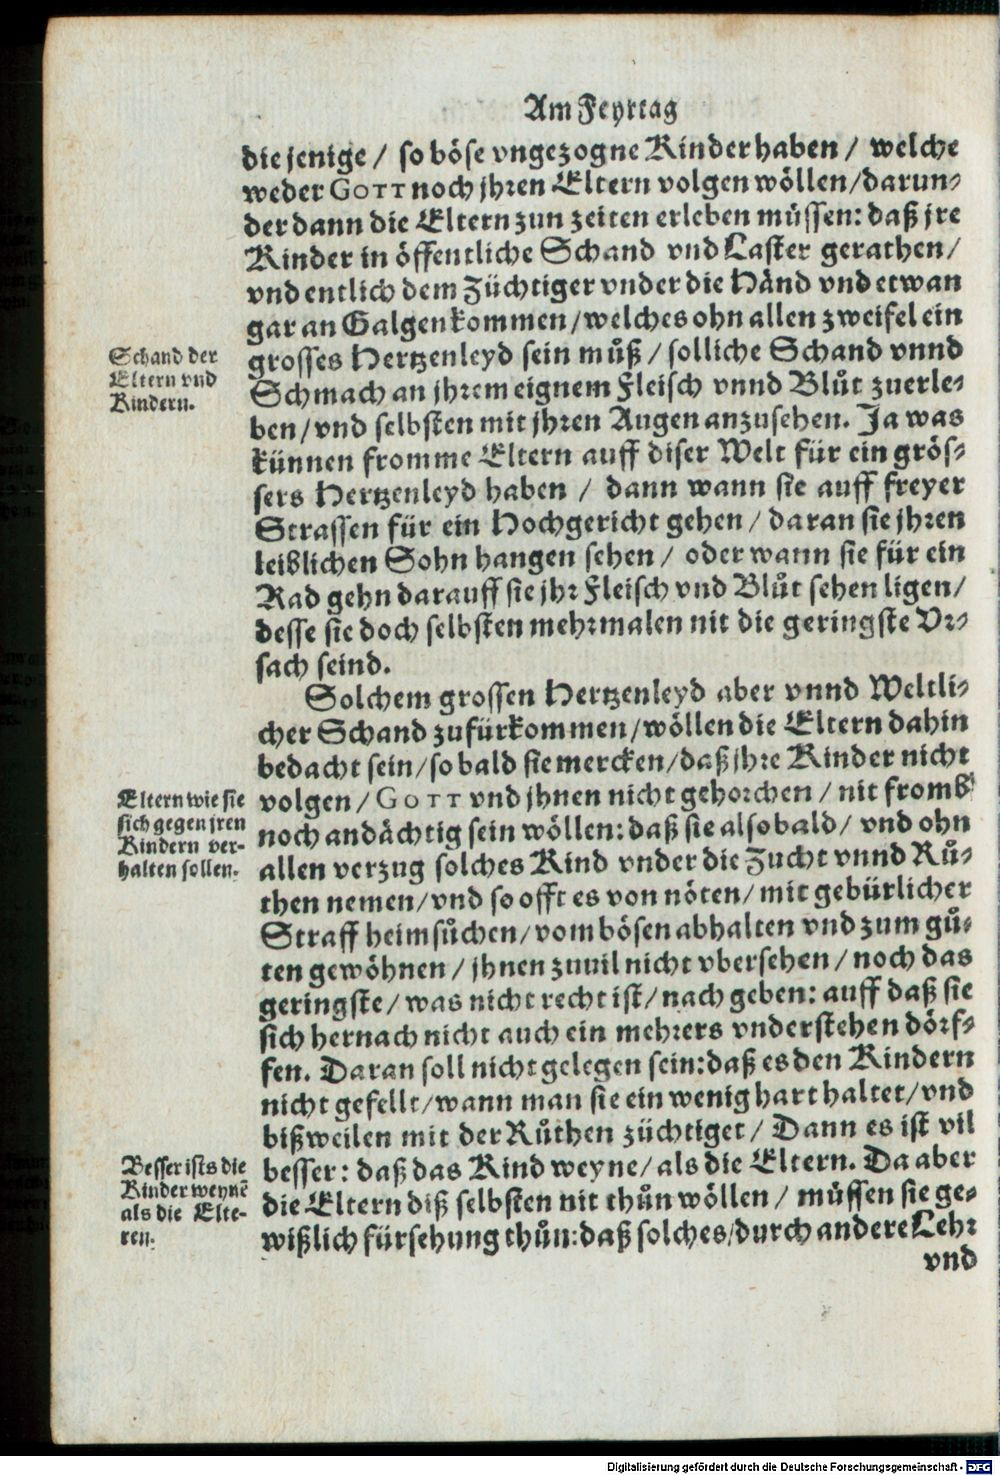 Am Feyrtag
die jenige / so böse vngezogne Kinder haben / welche
weder GOTT noch jhren Eltern volgen wöllen / darun-
der dann die Eltern zun zeiten erleben müssen: daß jre
Kinder in öffentliche Schand vnd Laster gerathen /
vnd entlich dem Züchtiger vnder die Händ vnd etwan
gar an Galgen kommen / welches ohn allen zweifel ein
grosses Hertzenleyd sein můß / solliche Schand vnnd
Schmach an jhrem eignem Fleisch vnnd Blůt zuerle-
ben / vnd selbsten mit jhren Augen anzusehen. Ja was
künnen fromme Eltern auff diser Welt für ein grös-
sers Hertzenleyd haben / dann wann sie auff freyer
Strassen für ein Hochgericht gehen / daran sie jhren
leiblichen Sohn hangen sehen / oder wann sie für ein
Rad gehn darauff sie jhr Fleisch vnd Blůt sehen ligen /
desse sie doch selbsten mehrmalen nit die geringste Vr-
sach seind.
Schand der
Eltern vnd
Kindern.
Solchem grossen Hertzenleyd aber vnnd Weltli-
cher Schand zufürkommen / wöllen die Eltern dahin
bedacht sein / so bald sie mercken / daß jhre Kinder nicht
volgen / GOTT vnd jhnen nicht gehorchen / nit fromb
noch andächtig sein wöllen: daß sie alsobald / vnd ohn
allen verzug solches Kind vnder die Zucht vnnd Rů-
then nemen / vnd so offt es von nöten / mit gebürlicher
Straff heimsůchen / vom bösen abhalten vnd zum gů-
ten gewöhnen / jhnen zuuil nicht vbersehen / noch das
geringste / was nicht recht ist / nach geben: auff daß sie
sich hernach nicht auch ein mehrers vnderstehen dörf-
fen. Daran soll nicht gelegen sein: daß es den Kindern
nicht gefellt / wann man sie ein wenig hart haltet / vnd
bißweilen mit der Růthen züchtiget / Dann es ist vil
besser: daß das Kind weyne / als die Eltern. Da aber
die Eltern diß selbsten nit thůn wöllen / müssen sie ge-
wißlich fürsehung thůn: daß solches / durch andere Lehr
vnd
Eltern wie sie
sich gegen jren
Kindern ver-
halten sollen.
Besser ists die
Kinder weynẽ
als die Elte-
ren.
Digitalisierung gefördert durch die Deutsche Forschungsgemeinschaft - DFG